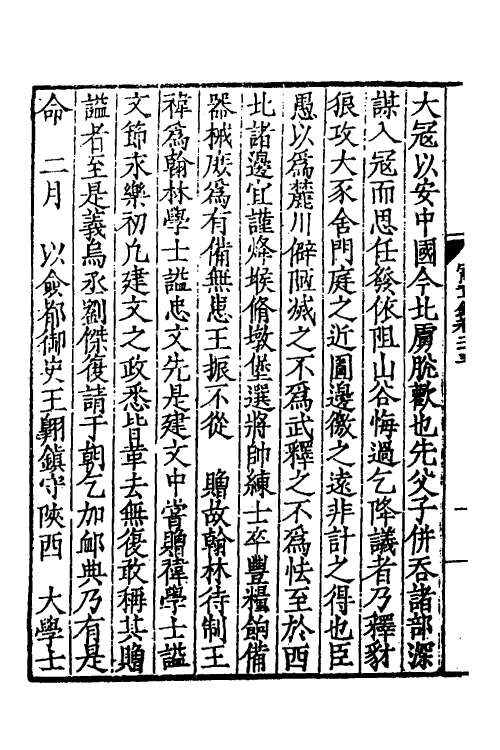 大寇以安中國今北虜脫歡也先父子併吞諸部深
謀入寇而思任發依阻山谷悔過乞降議者乃釋豺
狼攻犬豕舍門庭之近圖邊徼之遠非計之得也臣
愚以為麓川僻陋滅之不為武釋之不為怯至於西
北諸邊宜謹烽堠脩墩堡選將帥練士卒豐糧餉備
器械庶為有備無患王振不從　贈故翰林待制王
禕為翰林學士諡忠文先是建文中嘗贈禕學士諡
文節永樂初凡建文之政悉皆革去無復敢稱其贈
諡者至是義烏丞劉傑復請于朝乞加卹典乃有是
命　二月　以僉都御史王翺鎮守陝西　大學士